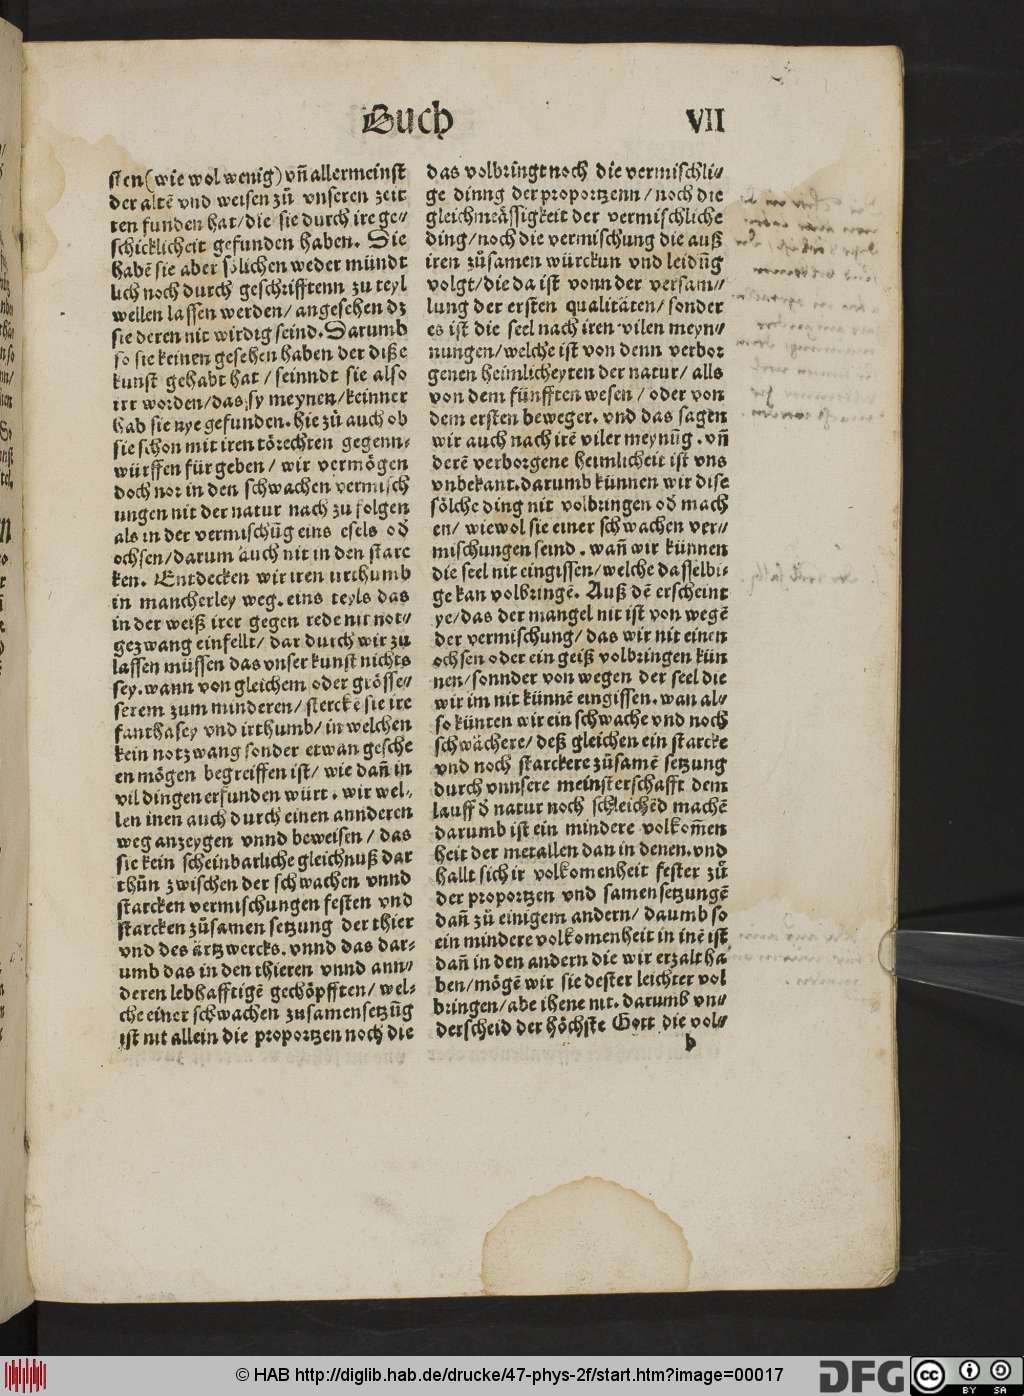 Buch VII
sten (wie wol wenig) vñ allermeinst
der altē vnd weisen zů vnseren zeit
ten funden hat/die sie durch ire ge⸗
schicklicheit gefunden haben. Sie
habē sie aber sölichen weder mündt
lich noch durch geschrifftenn zu teyl
wellen lassen werden/angesehen dz
sie deren nit wirdig seind. Darumb
so sie keinen gesehen haben der diße
kunst gehabt hat/seinndt sie also
irr worden/das sy meynen/keinner
hab sie nye gefunden. hie zů auch ob
sie schon mit iren törechten gegenn⸗
würffen für geben/wir vermögen
doch nor in den schwachen vermisch
ungen nit der natur nach zu folgen
als in der vermischūg eins esels od̄
ochsen/darum auch nit in den starc
ken. Entdecken wir iren irthumb
in mancherley weg. eins teyls das
in der weiß irer gegen rede nit not⸗
gezwang einfellt/dar durch wir zu
lassen müssen das vnser kunst nichts
sey. wann von gleichem oder grösse⸗
serem zum minderen/sterckē sie ire
fanthasey vnd irthumb/in welchen
kein notzwang sonder etwan gesche
en mögen begreiffen ist/wie dañ in
vil dingen erfunden würt. wir wel⸗
len inen auch durch einen annderen
weg anzeygen vnnd beweisen/das
sie kein scheinbarliche gleichnuß dar
thůn zwischen der schwachen vnnd
starcken vermischungen festen vnd
starcken zůsamen setzung der thier
vnd des ärtzwercks. vnnd das dar⸗
umb das in den thieren vnnd ann⸗
deren lebhafftigē gechöpfften/wel⸗
che einer schwachen zusamensetzūg
ist nit allein die proportzen noch die
das volbringt noch die vermischli⸗
ge dinng der proportzenn/noch die
gleichmeässigkeit der vermischliche
ding/noch die vermischung die auß
iren zůsamen würckun vnd leidūg
volgt/die da ist vonn der versam⸗
lung der ersten qualitäten/sonder
es ist die seel nach iren vilen meyn⸗
nungen/welche ist von denn verbor
genen heimlicheyten der natur/alls
von dem fünfften wesen/oder von
dem ersten beweger. vnd das sagen
wir auch nach irē viler meynūg. vñ
derē verborgene heimlicheit ist vns
vnbekant. darumb künnen wir dise
sölche ding nit volbringen od̄ mach
en/wiewol sie einer schwachen ver⸗
mischungen seind. wañ wir künnen
die seel nit eingissen/welche dasselbi⸗
ge kan volbringē. Auß dē erscheint
ye/das der mangel nit ist von wegē
der vermischung/das wir nit einen
ochsen oder ein geiß volbringen kün
nen/sonnder von wegen der seel die
wir im nit künnē eingissen. wan al⸗
so künten wir ein schwache vnd noch
schwächere/deß gleichen ein starcke
vnd noch starckere zůsamē setzung
durch vnnsere meinsterschafft dem
lauff d̄ natur noch schleichēd machē
darumb ist ein mindere volkom̄en
heit der metallen dan in denen. vnd
hallt sich ir volkomenheit fester zů
der proportzen vnd samensetzungē
dañ zů einigem andern/daumb so
ein mindere volkomenheit in inē ist
dañ in den andern die wir erzalt ha
ben/mögē wir sie dester leichter vol
bringen/abe ihene nit. darumb vn⸗
derscheid der höchste Gott die vol⸗
b
© HAB http://diglib.hab.de/drucke/47-phys-2f/start.htm?image=00017
DFG
cc
BY SA